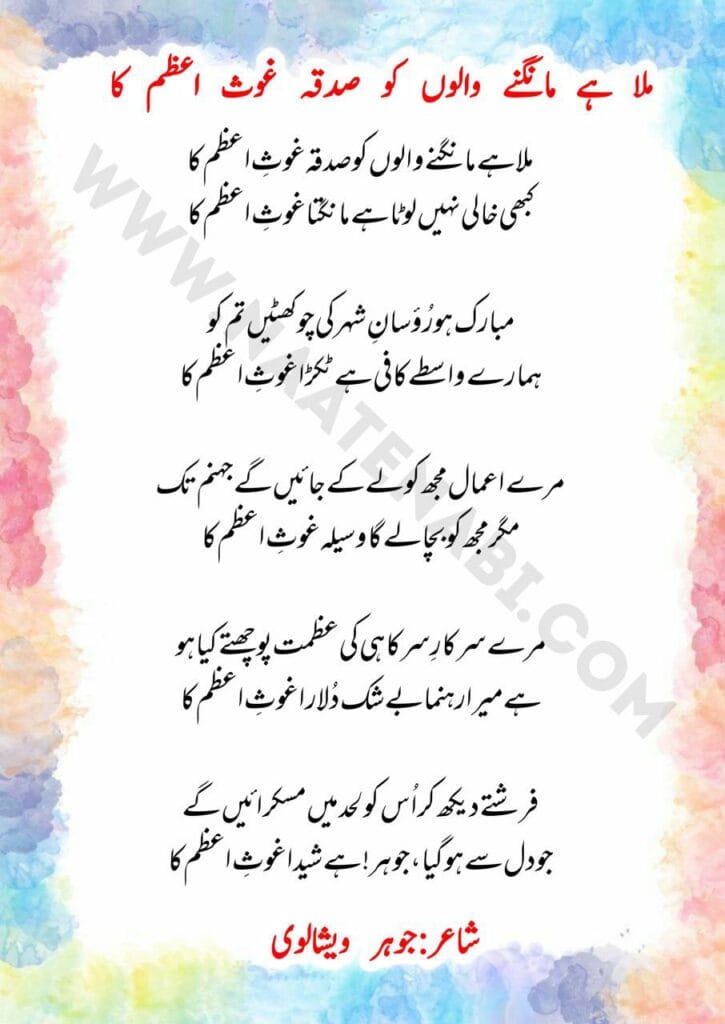 ملا ہے مانگنے والوں کو صدقہ غوث اعظم کا
ملا ہے مانگنے والوں کو صدقہ غوثِ اعظم کا
کبھی خالی نہیں لوٹا ہے مانگتا غوثِ اعظم کا
مبارک ہو رُؤسانِ شہر کی چوکھٹیں تم کو
ہمارے واسطے کافی ہے ٹکڑا غوثِ اعظم کا
مرے اعمال مجھ کو لے کے جائیں گے جہنم تک
مگر مجھ کو بچا لے گا وسیلہ غوثِ اعظم کا
مرے سرکارِ سرکاہی کی عظمت پوچھتے کیا ہو
ہے میرا رہنما بے شک دُلارا غوثِ اعظم کا
فرشتے دیکھ کر اُس کو لحد میں مسکرائیں گے
جو دل سے ہو گیا، جوہر! ہے شیدا غوثِ اعظم کا
شاعر: جوہر ویشالوی
WWW.NAATENABI.COM